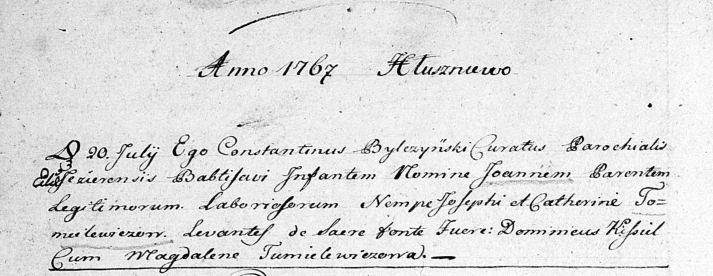 Anno 1767 Hłuszniewo
D 20. Julij Ego Constantinus Bylczyński Curatus Parochialis
Jezierensis Babtisavi Infantem Nomine Joannem Parentem
Legitimorum Laboriosorum Nempe Josephi et Catherine To=
mielewiczow. Levantes de Sacre fonte Fuere: Dominicus Kisiel
Cum Magdalene Tumielewiczowa. —